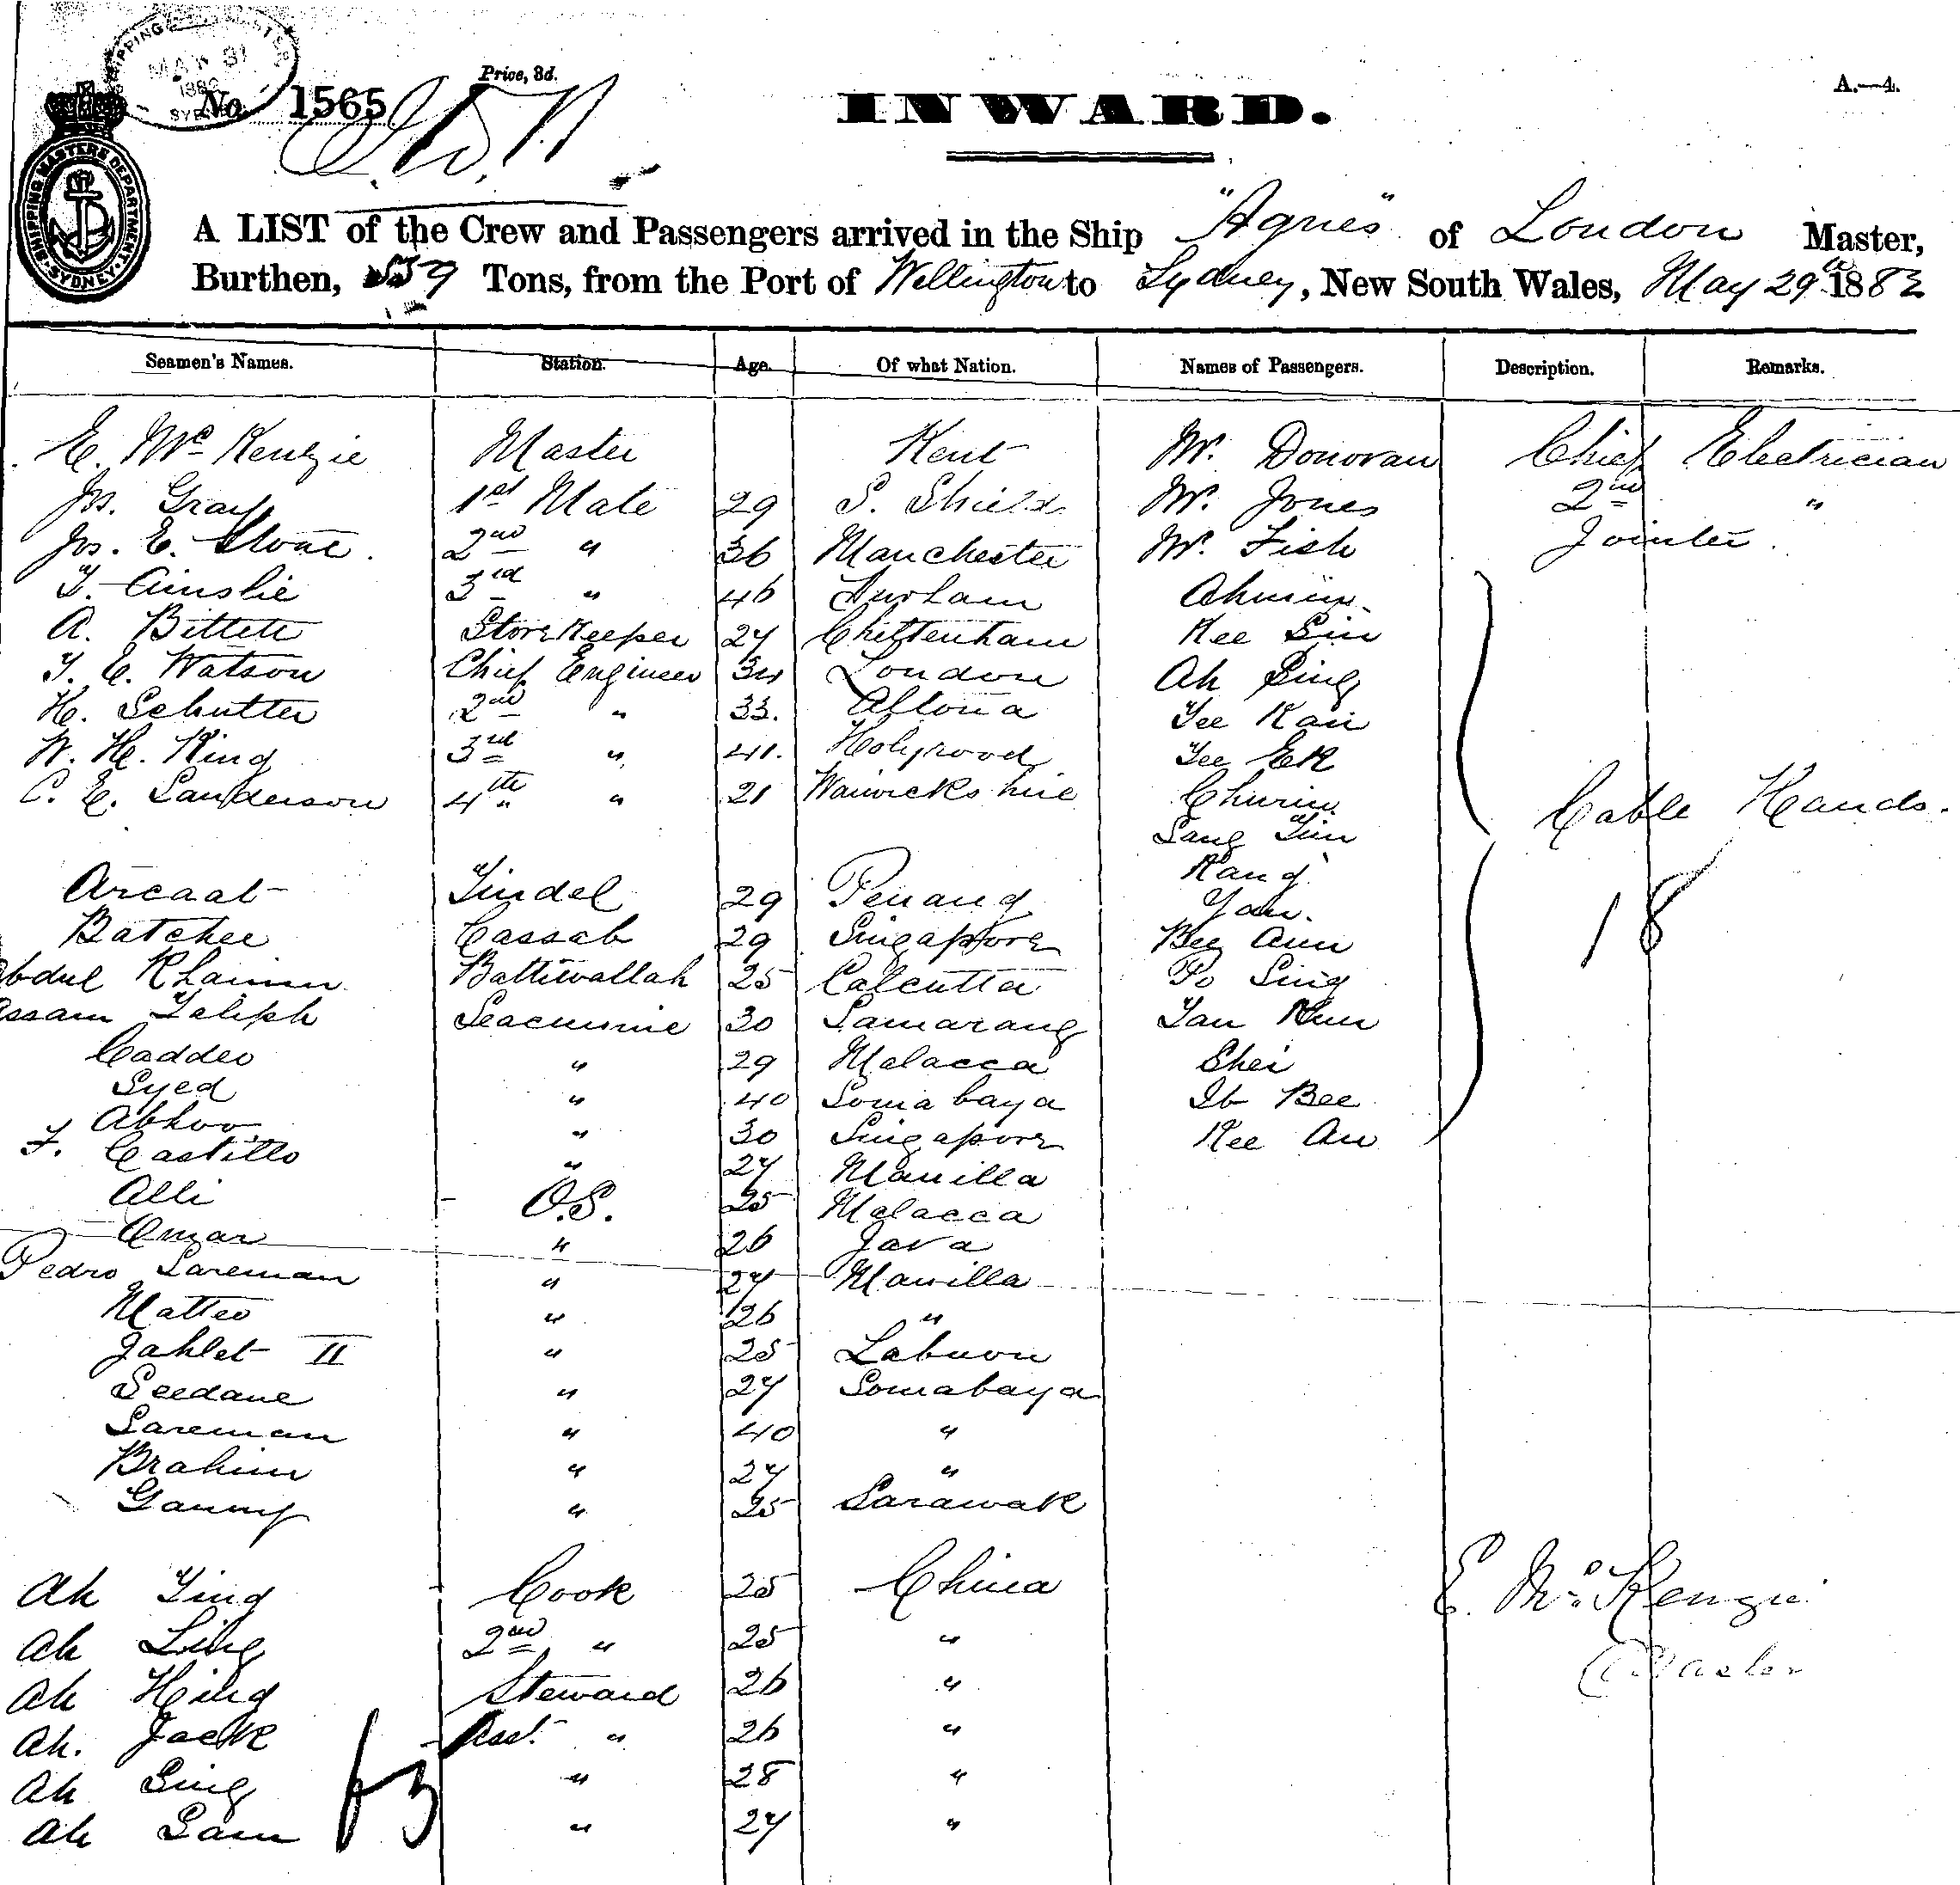 SHIPPING MASTER
MAY 31
SYDNEY
Price, 3d.
No. 1565
A.—4.
INWARD.
SHIPPING MASTERS DEPARTMENT. SYDNEY.
A LIST of the Crew and Passengers arrived in the Ship "Agnes" of London Master,
Burthen, 559 Tons, from the Port of Wellington to Sydney, New South Wales, May 29th 1883
Seamen's Names. Station. Age. Of what Nation. Names of Passengers. Description. Remarks.
E. McKenzie Master Kent Mr. Donovan Chief Electrician
Js. Gray 1st Mate 29 S. Shields Mr. Jones 2nd "
Jos. E. Stone. 2nd " 36 Manchester Mr. Fish Jointer.
T. Ainslie 3rd " 46 Durham
A. Bittett StoreKeeper 27 Cheltenham Kee Sin
T. E. Watson Chief Engineer 34 London Ah Sing
H. Schutter 2nd " 33. Altona Yee Kan
W. H. King 3rd " 41. Holyrood Yee Ek
C. E. Sanderson 4th " 21 Warwickshire Churin Cable Hands.
Sang Tim
Arcaat Tindel 29 Penang Kang
Yan.
18
Batchee Cassab 29 Singapore Bee Ann
Abdul Khamin Battiwallah 25 Calcutta Po Sing
Assam Taliph Seacunnie 30 Samarang Tan Kun
Caddeo " 29 Malacca Shei
Syed " 40 Sourabaya It Bee
Abkoo " 30 Singapore Kee An
F. Castillo " 27 Manilla
Alli O.S. 25 Malacca
Omar " 26 Java
Pedro Sareman " 27 Manilla
Matteo " 26 "
Jahlet II " 25 Labuon
Seedane " 27 Sourabaya
Sareman " 40 "
Brahim " 27 "
Ganny " 25 Sarawak
Ah Ting Cook 25 China
E. McKenzie
Ah Ling 2nd " 25 "
Master
Ah Hing Steward 26 "
Ah. Jack Asst. " 26 "
Ah Sing " 28 "
Ah Sam " 27 "